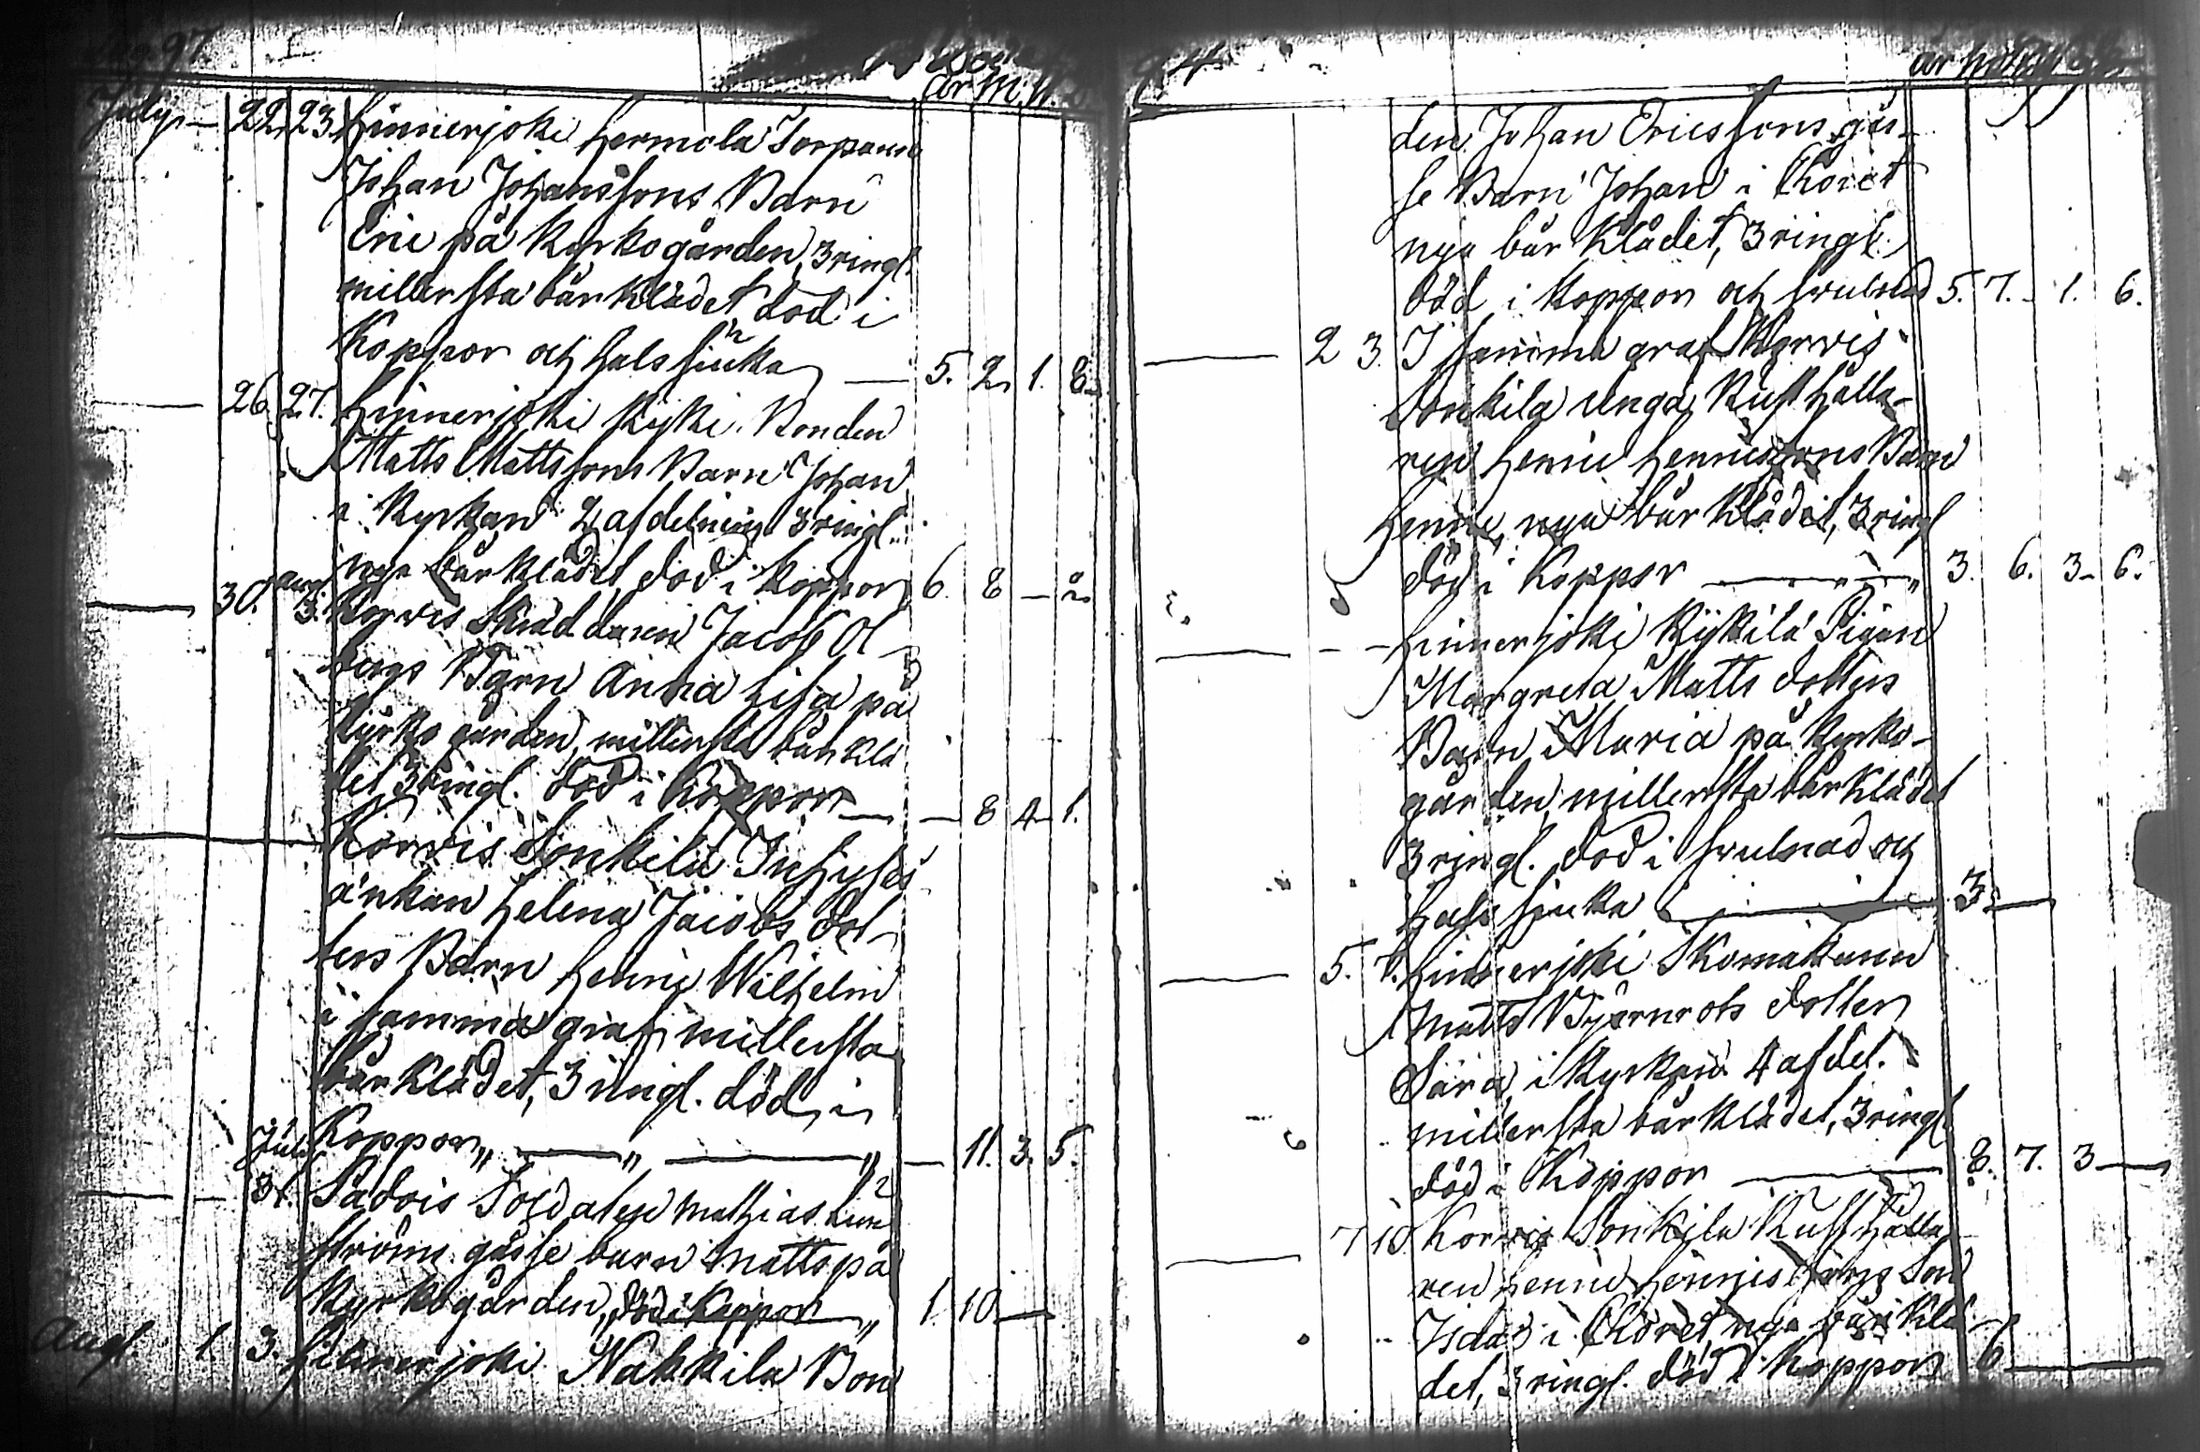 97
år M. W. d
July 22. 23. Hinnerjoki Hermola Torparen
Johan Johanssons Barn
Eric på Kyrkogården, 3 ringl.
millersta bårklädet död i
Koppor och halssiuka — 5. 2. 1. 8.
— 26. 27. Hinnerjoki Kyki Bonden
Matts Mattssons Barn Johan
i Kyrkan 2 afdelning 3 ringl.
nya bårklädet död i koppor 6. 8 — 2.
— 30. aug. 3. Korvis Skräddaren Jacob Ol
bergs Barn Anna Lisa på
kyrko gården, millersta bårklä
det 3 ringl. död i koppor — — 8 4 1.
— Korvis Sonkila Inhyses
änkan Helena Jacobs dot
ters Barn Henric Wilhelm
i samma graf millersta
bårklädet, 3 ringl. död i
Koppor „ — „ — „ — 11. 3. 5.
— July 31. Sadois Soldaten Mathias Lin
ströms gåsse barn Matts på
kyrkogården, död i koppor — „ 1. 10 —
Aug. 1 3. Hinnerjoki Nakkila Bon
år
den Johan Ericssons gås-
se Barn Johan i Choret
nya bår klädet, 3 ringl.
död i koppor och svulnad 5. 7. 1. 6.
— 2 3. I samma graf Korvis
Sonkila unga Rusthålla-
ren Henric Henricssons Barn
Henric, nya bår klädet, 3 ringl
död i koppor — „ 3. 6. 3 6.
— - - Hinnerjoki Kyikilä Pigan
Margreta Matts dotters
Barn Maria på kyrko-
gården millersta bårklädet
3 ringl. död i svulnad och
hals siuka — 3. —
— 5. 7. Hinnerjoki Skomakaren
Matts Biörnrots dotter
Sara i kyrkan 4 afdel.
millersta bårklädet, 3 ringl
död i Koppor — 8. 7. 3 —
— 7 10. Korvis Sonkila Rusthålla
ren Henric Henricssons Son
Isaac i Choret nya bårklä
det, 3 ringl. död i koppor 6 —